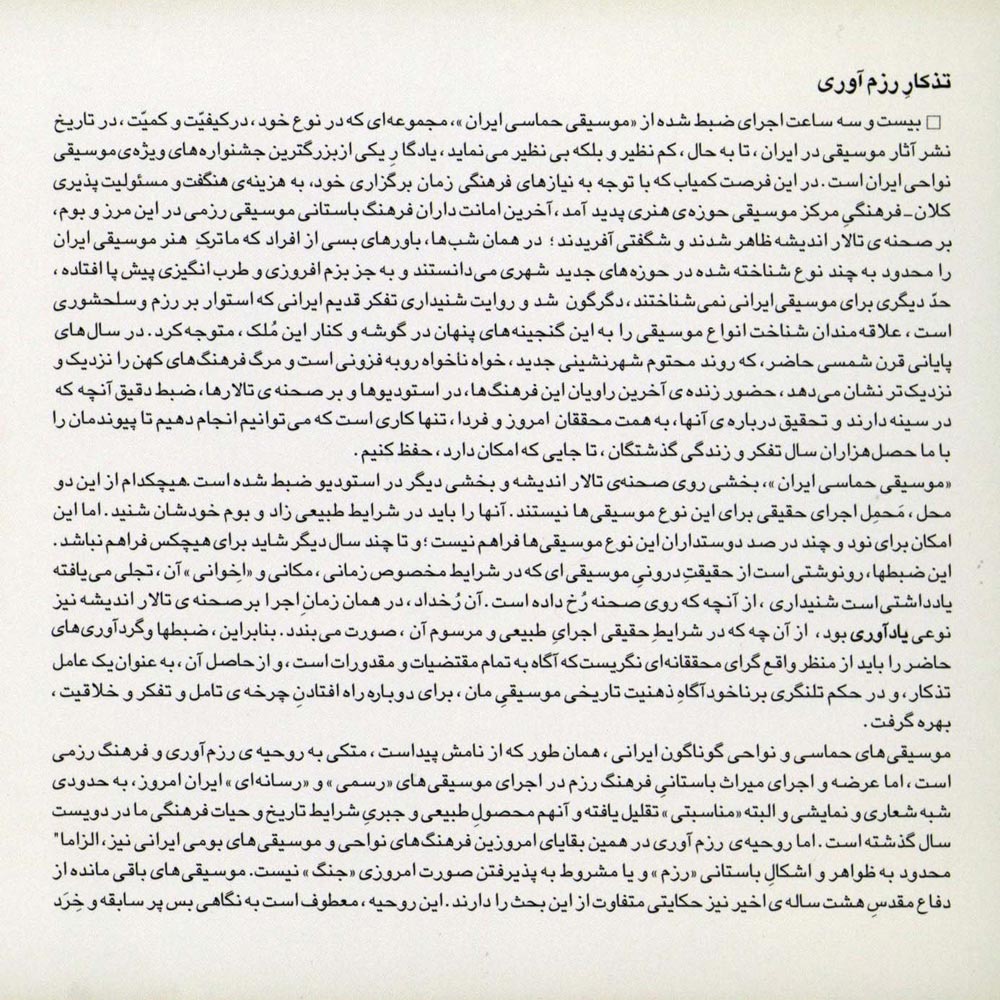 تذکارِ رزم‌آوری
□ بیست و سه ساعت اجرای ضبط شده از «موسیقی حماسی ایران»، مجموعه‌ای که در نوع خود، در کیفیّت و کمیّت، در تاریخ
نشر آثار موسیقی در ایران، تا به حال، کم نظیر و بلکه بی نظیر می‌نماید، یادگارِ یکی از بزرگترین جشنواره‌های ویژه‌ی موسیقی
نواحی ایران است. در این فرصت کمیاب که با توجه به نیازهای فرهنگی زمان برگزاری خود، به هزینه‌ی هنگفت و مسئولیت پذیری
کلان-فرهنگیِ مرکز موسیقی حوزه‌ی هنری پدید آمد، آخرین امانت داران فرهنگ باستانی موسیقی رزمی در این مرز و بوم،
بر صحنه ی تالار اندیشه ظاهر شدند و شگفتی آفریدند؛ در همان شب‌ها، باورهای بسی از افراد که ماترکِ هنر موسیقی ایران
را محدود به چند نوع شناخته شده در حوزه‌های جدید شهری می‌دانستند و به جز بزم افروزی و طرب انگیزی پیش پا افتاده،
حدّ دیگری برای موسیقی ایرانی نمی‌شناختند، دگرگون شد و روایت شنیداری تفکر قدیم ایرانی که استوار بر رزم و سلحشوری
است، علاقه‌مندان شناخت انواع موسیقی را به این گنجینه‌های پنهان در گوشه و کنار این مُلک، متوجه کرد. در سال‌های
پایانی قرن شمسی حاضر، که روند محتوم شهرنشینی جدید، خواه ناخواه رو به فزونی است و مرگ فرهنگ‌های کهن را نزدیک و
نزدیک‌تر نشان می‌دهد، حضور زنده ی آخرین راویان این فرهنگ‌ها، در استودیوها و بر صحنه ی تالارها، ضبط دقیق آنچه که
در سینه دارند و تحقیق درباره ی آنها، به همت محققان امروز و فردا، تنها کاری است که می‌توانیم انجام دهیم تا پیوندمان را
با ما حصل هزاران سال تفکر و زندگی گذشتگان، تا جایی که امکان دارد، حفظ کنیم.
«موسیقی حماسی ایران»، بخشی روی صحنه‌ی تالار اندیشه و بخشی دیگر در استودیو ضبط شده است. هیچکدام از این دو
محل، مَحمِل اجرای حقیقی برای این نوع موسیقی‌ها نیستند. آنها را باید در شرایط طبیعی زاد و بوم خودشان شنید. اما این
امکان برای نود و چند در صد دوستداران این نوع موسیقی‌ها فراهم نیست؛ و تا چند سال دیگر شاید برای هیچکس فراهم نباشد.
این ضبطها، رونوشتی است از حقیقتِ درونیِ موسیقی ای که در شرایط مخصوص زمانی، مکانی و «اِخوانی» آن، تجلی می‌یافته
یادداشتی است شنیداری، از آنچه که روی صحنه رُخ داده است. آن رُخداد، در همان زمانِ اجرا بر صحنه ی تالار اندیشه نیز
نوعی یادآوری بود، از آن چه که در شرایطِ حقیقی اجرایِ طبیعی و مرسوم آن، صورت می‌بندد. بنابراین، ضبطها وگردآوری‌های
حاضر را باید از منظر واقع گرای محققانه‌ای نگریست که آگاه به تمام مقتضیات و مقدورات است، و از حاصل آن، به عنوان یک عامل
تذکار، و در حکم تلنگری بر ناخودآگاهِ ذهنیت تاریخی موسیقیِ مان، برای دوباره راه افتادنِ چرخه ی تامل و تفکر و خلاقیت،
بهره گرفت.
موسیقی‌های حماسی و نواحی گوناگون ایرانی، همان طور که از نامش پیداست، متکی به روحیه ی رزم‌آوری و فرهنگ رزمی
است، اما عرضه و اجرای میراث باستانیِ فرهنگ رزم در اجرای موسیقی‌های «رسمی» و «رسانه‌ای» ایران امروز، به حدودی
شبه شعاری و نمایشی و البته «مناسبتی» تقلیل یافته و آنهم محصولِ طبیعی و جبریِ شرایط تاریخ و حیات فرهنگی ما در دویست
سال گذشته است. اما روحیه‌ی رزم آوری در همین بقایای امروزین فرهنگ‌های نواحی و موسیقی‌های بومی ایرانی نیز، الزاما"
محدود به ظواهر و اشکالِ باستانی «رزم» و یا مشروط به پذیرفتن صورت امروزی «جنگ» نیست. موسیقی‌های باقی مانده از
دفاع مقدسِ هشت ساله ی اخیر نیز حکایتی متفاوت از این بحث را دارند. این روحیه، معطوف است به نگاهی بس پر سابقه و خِرَد